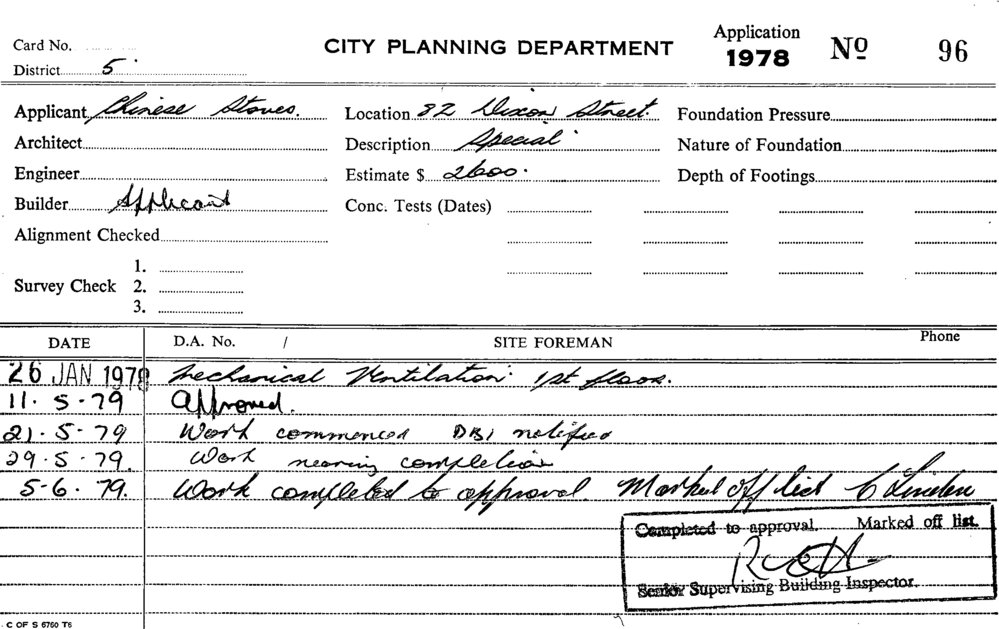 Card No.
CITY PLANNING DEPARTMENT
Application
1978 Nº 96
District 5
Applicant Chinese Stores. Location 82 Dixon Street. Foundation Pressure
Architect Description Special Nature of Foundation
Engineer Estimate $ 2600. Depth of Footings
Builder Applicant Conc. Tests (Dates)
Alignment Checked
1.
Survey Check 2.
3.
DATE D.A. No. / SITE FOREMAN Phone
26 JAN 1978 Mechanical Ventilation 1st floor.
11.5-79 Approved.
21.5-79 Work commenced DBI notified
29.5-79. Work nearing completion
5-6.79. Work completed to approval Marked off list C Linden
Completed to approval. Marked off list.
Senior Supervising Building Inspector.
C OF S 6760 T6